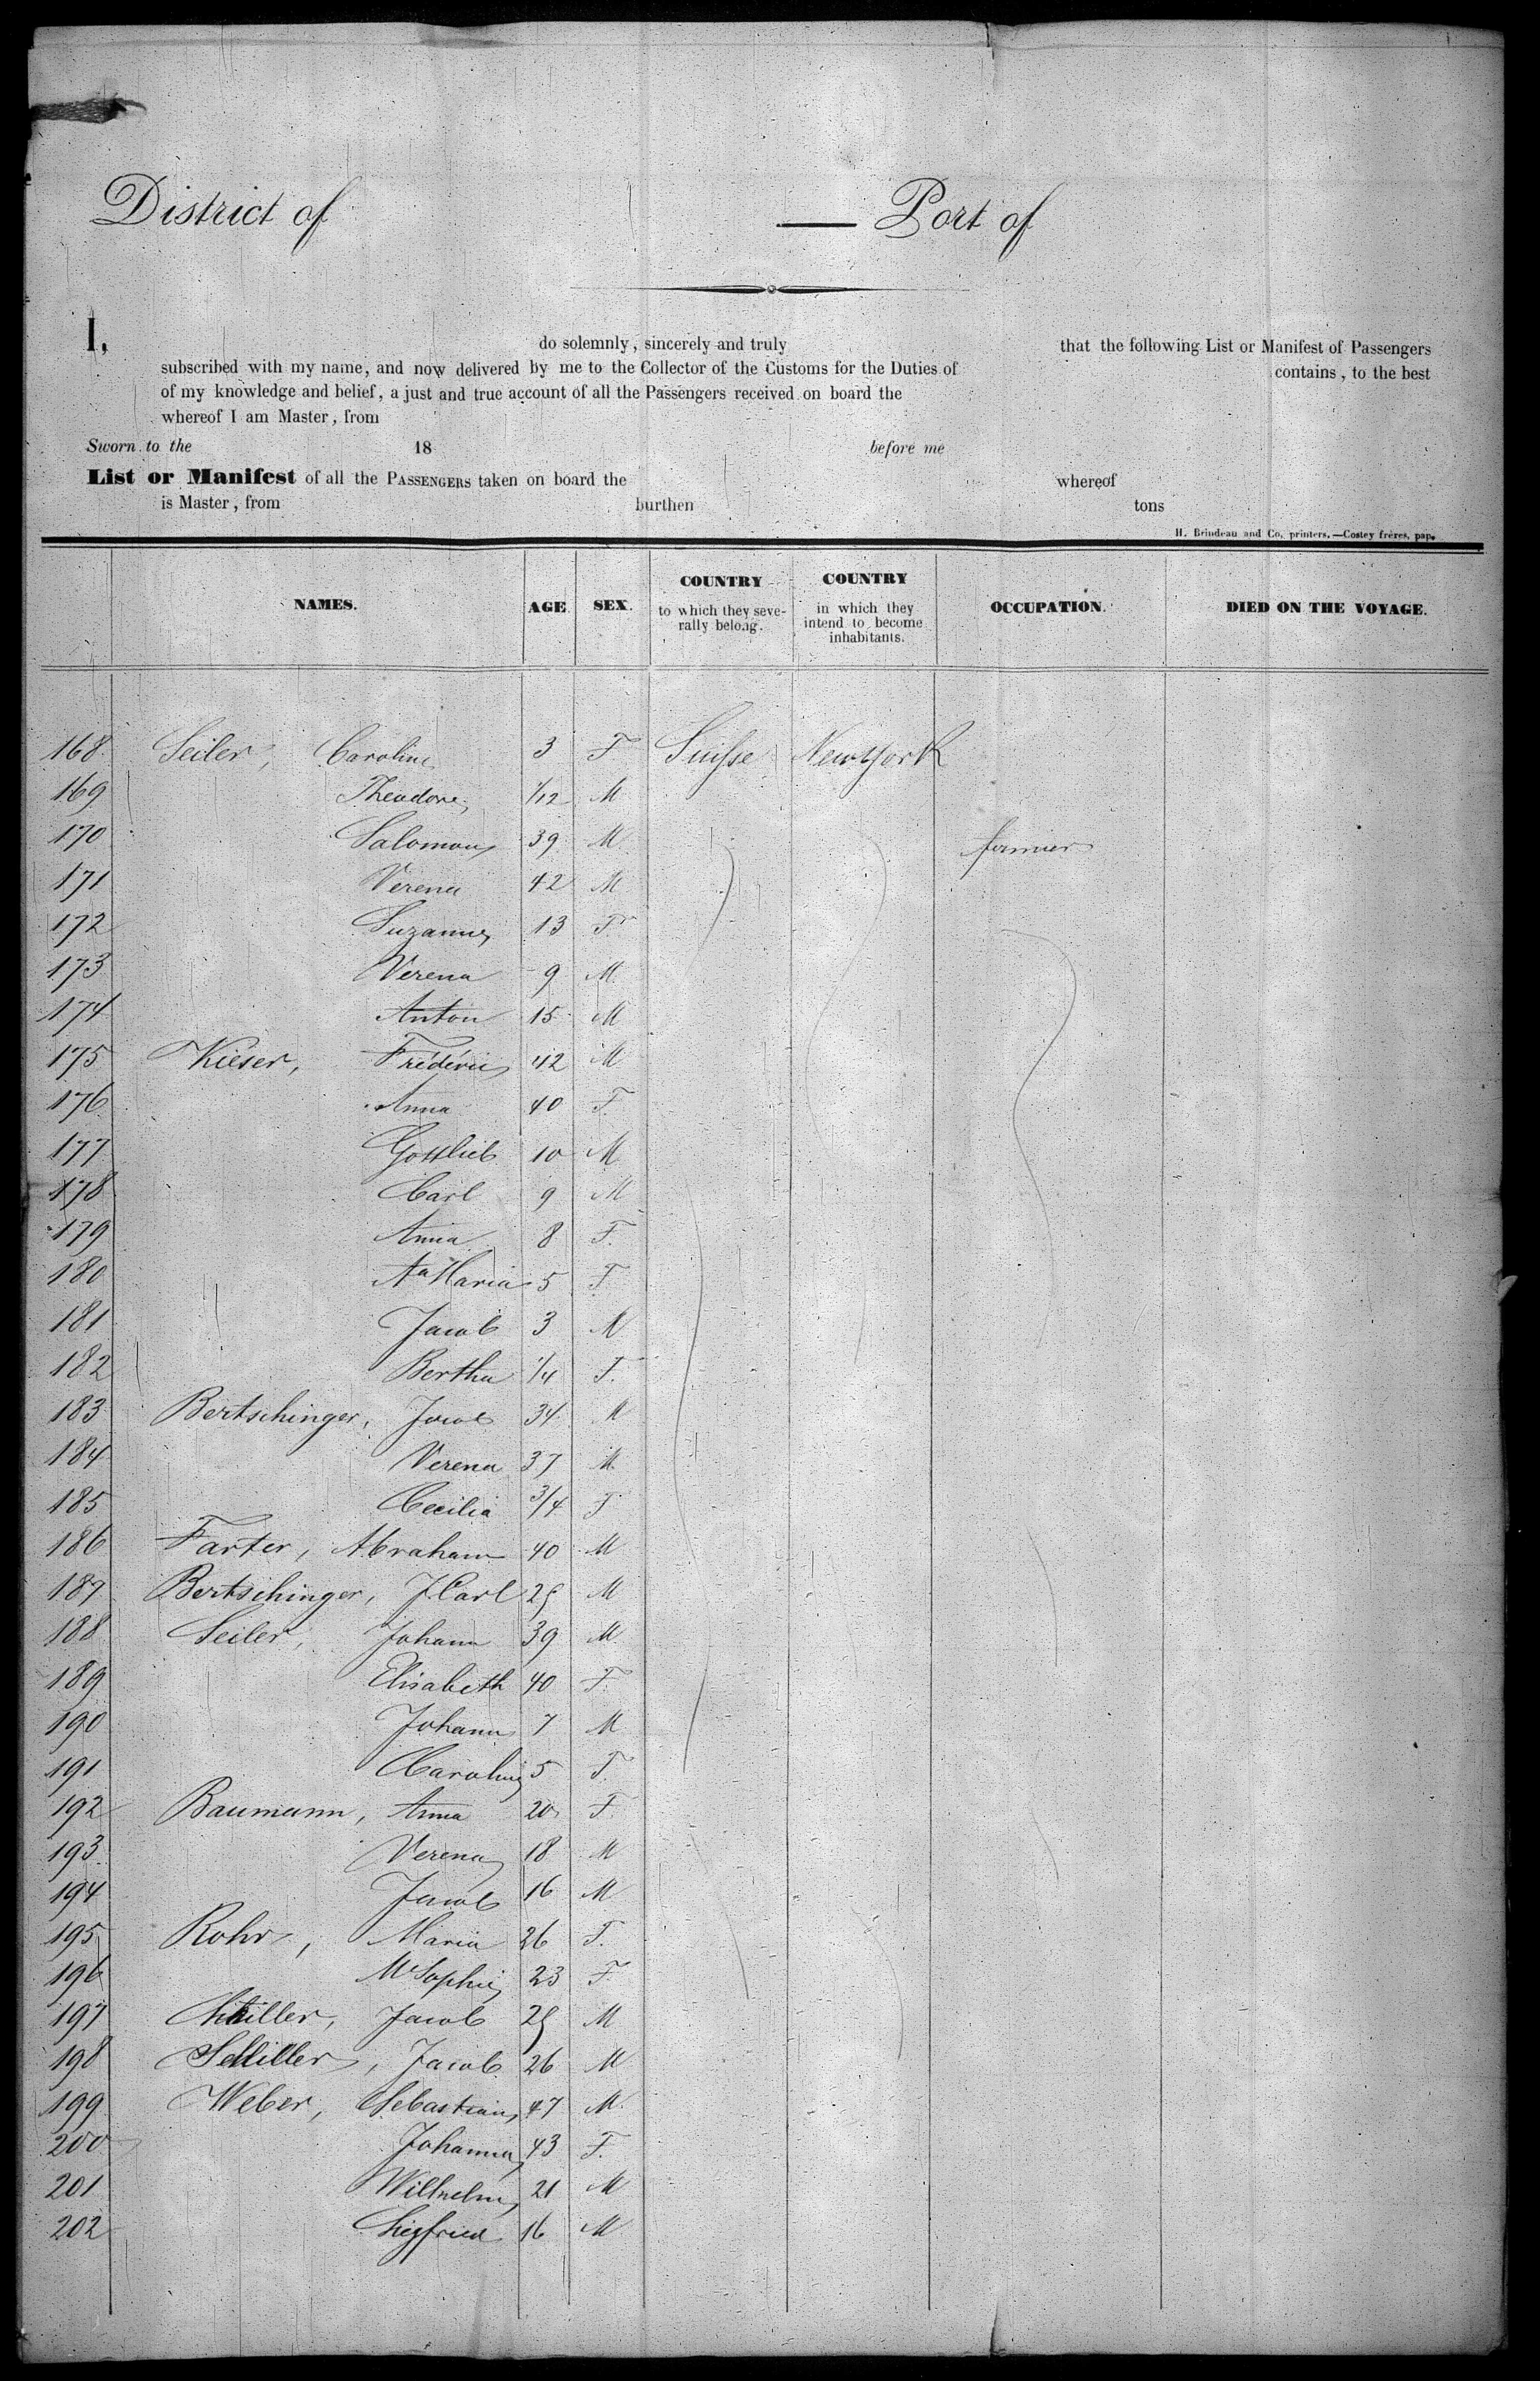 District of — Port of
I, do solemnly, sincerely and truly that the following List or Manifest of Passengers
subscribed with my name, and now delivered by me to the Collector of the Customs for the Duties of contains, to the best
of my knowledge and belief, a just and true account of all the Passengers received on board the
whereof I am Master, from
Sworn to the 18 before me
List or Manifest of all the PASSENGERS taken on board the whereof
is Master, from burthen tons
H. Brindeau and Co, printers.—Costey frères, pap.
NAMES. AGE SEX. COUNTRY to which they severally belong. COUNTRY in which they intend to become inhabitants. OCCUPATION. DIED ON THE VOYAGE.
168 Seiler, Caroline 3 F Suisse New York
169 Theodore 1/12 M
170 Salomon 39 M farmer
171 Verena 42 M
172 Suzanne 13 F
173 Verena 9 M
174 Anton 15 M
175 Kieser, Fréderic 42 M
176 Anna 40 F.
177 Gottlieb 10 M
178 Carl 9 M
179 Anna 8 F.
180 Aa Maria 5 F
181 Jacob 3 M
182 Bertha 1/4 F.
183 Bertschinger, Jacob 34 M
184 Verena 37 M
185 Cecilia 3/4 F
186 Farter, Abraham 40 M
187 Bertschinger, J. Carl 25 M
188 Seiler, Johann 39 M
189 Elisabeth 40 F.
190 Johann 7 M
191 Caroline 5 F.
192 Baumann, Anna 20 F
193 Verena 18 M
194 Jacob 16 M
195 Rohr, Maria 26 F.
196 M Sophie 23 F.
197 Jacob 25 M
198 Schiller, Jacob 26 M
199 Weber, Sebastian 47 M
200 Johanna 43 F.
201 Wilhelm 21 M
202 Siegfried 16 M